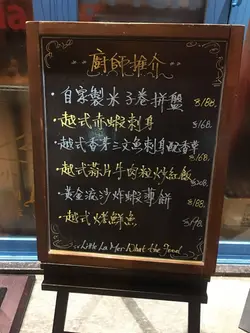 廚師推介
·自家製米子卷拼盤 $168.
·越式赤蝦刺身 $168.
·越式香茅三文魚刺身配香草 $168.
·越式蒜片牛肉粒炒紅飯 $208.
·黃金流沙炸蝦薄餅 $188.
·越式烤鮮魚 $198.
Little La Mer What the food